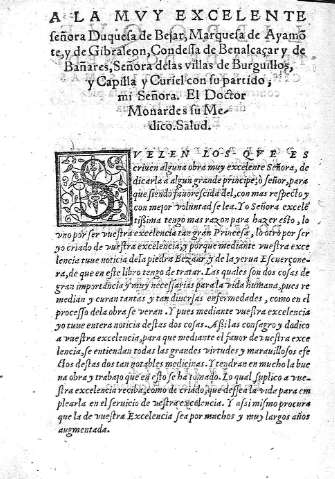 A LA MVY EXCELENTE
señora Duquesa de Bejar, Marquesa de Ayamō
te, y de Gibraleon, Condessa de Benalcaçar y de
Bañares, Señora delas villas de Burguillos,
y Capilla y Curiel con su partido,
mi Señora. El Doctor
Monardes su Me-
dico. Salud.
SVELEN LOS QVE ES
criuen alguna obra muy excelente Señora, de
dicarla a algun grande principe, ò señor, para
que siendo fauorescida del, con mas respecto y
con mejor voluntad se lea. Yo Señora excelē
tissima tengo mas razon para hazer esto, lo
vno por ser vuestra excelencia tan gran Princesa, lo otro por ser
yo criado de vuestra excelencia, y porque mediante vuestra exce
lencia tuue noticia dela piedra Bezaar, y dela yerua Escuerçone-
ra, de que en este libro tengo de tratar. Las quales son dos cosas de
gran importācia y muy necessarias para la vida humana, pues re
median y curan tantas y tan diuersas enfermedades, como en el
processo dela obra se veran. Y pues mediante vuestra excelencia
yo tuue entera noticia destas dos cosas. Assi las consagro y dedico
a vuestra excelencia, para que mediante el fauor de vuestra exce
lencia, se entiendan todas las grandes virtudes y marauillosos efe
ctos destas dos tan notables medicinas. Y tendran en mucho la bue
na obra y trabajo que en esto se ha tomado. Lo qual suplico a vue-
stra excelencia reciba, como de criado, que dessea la vida para em
plearla en el seruicio de vuestra excelencia. Y assi mismo procura
que la de vuestra Excelencia sea por muchos y muy largos años
augmentada.